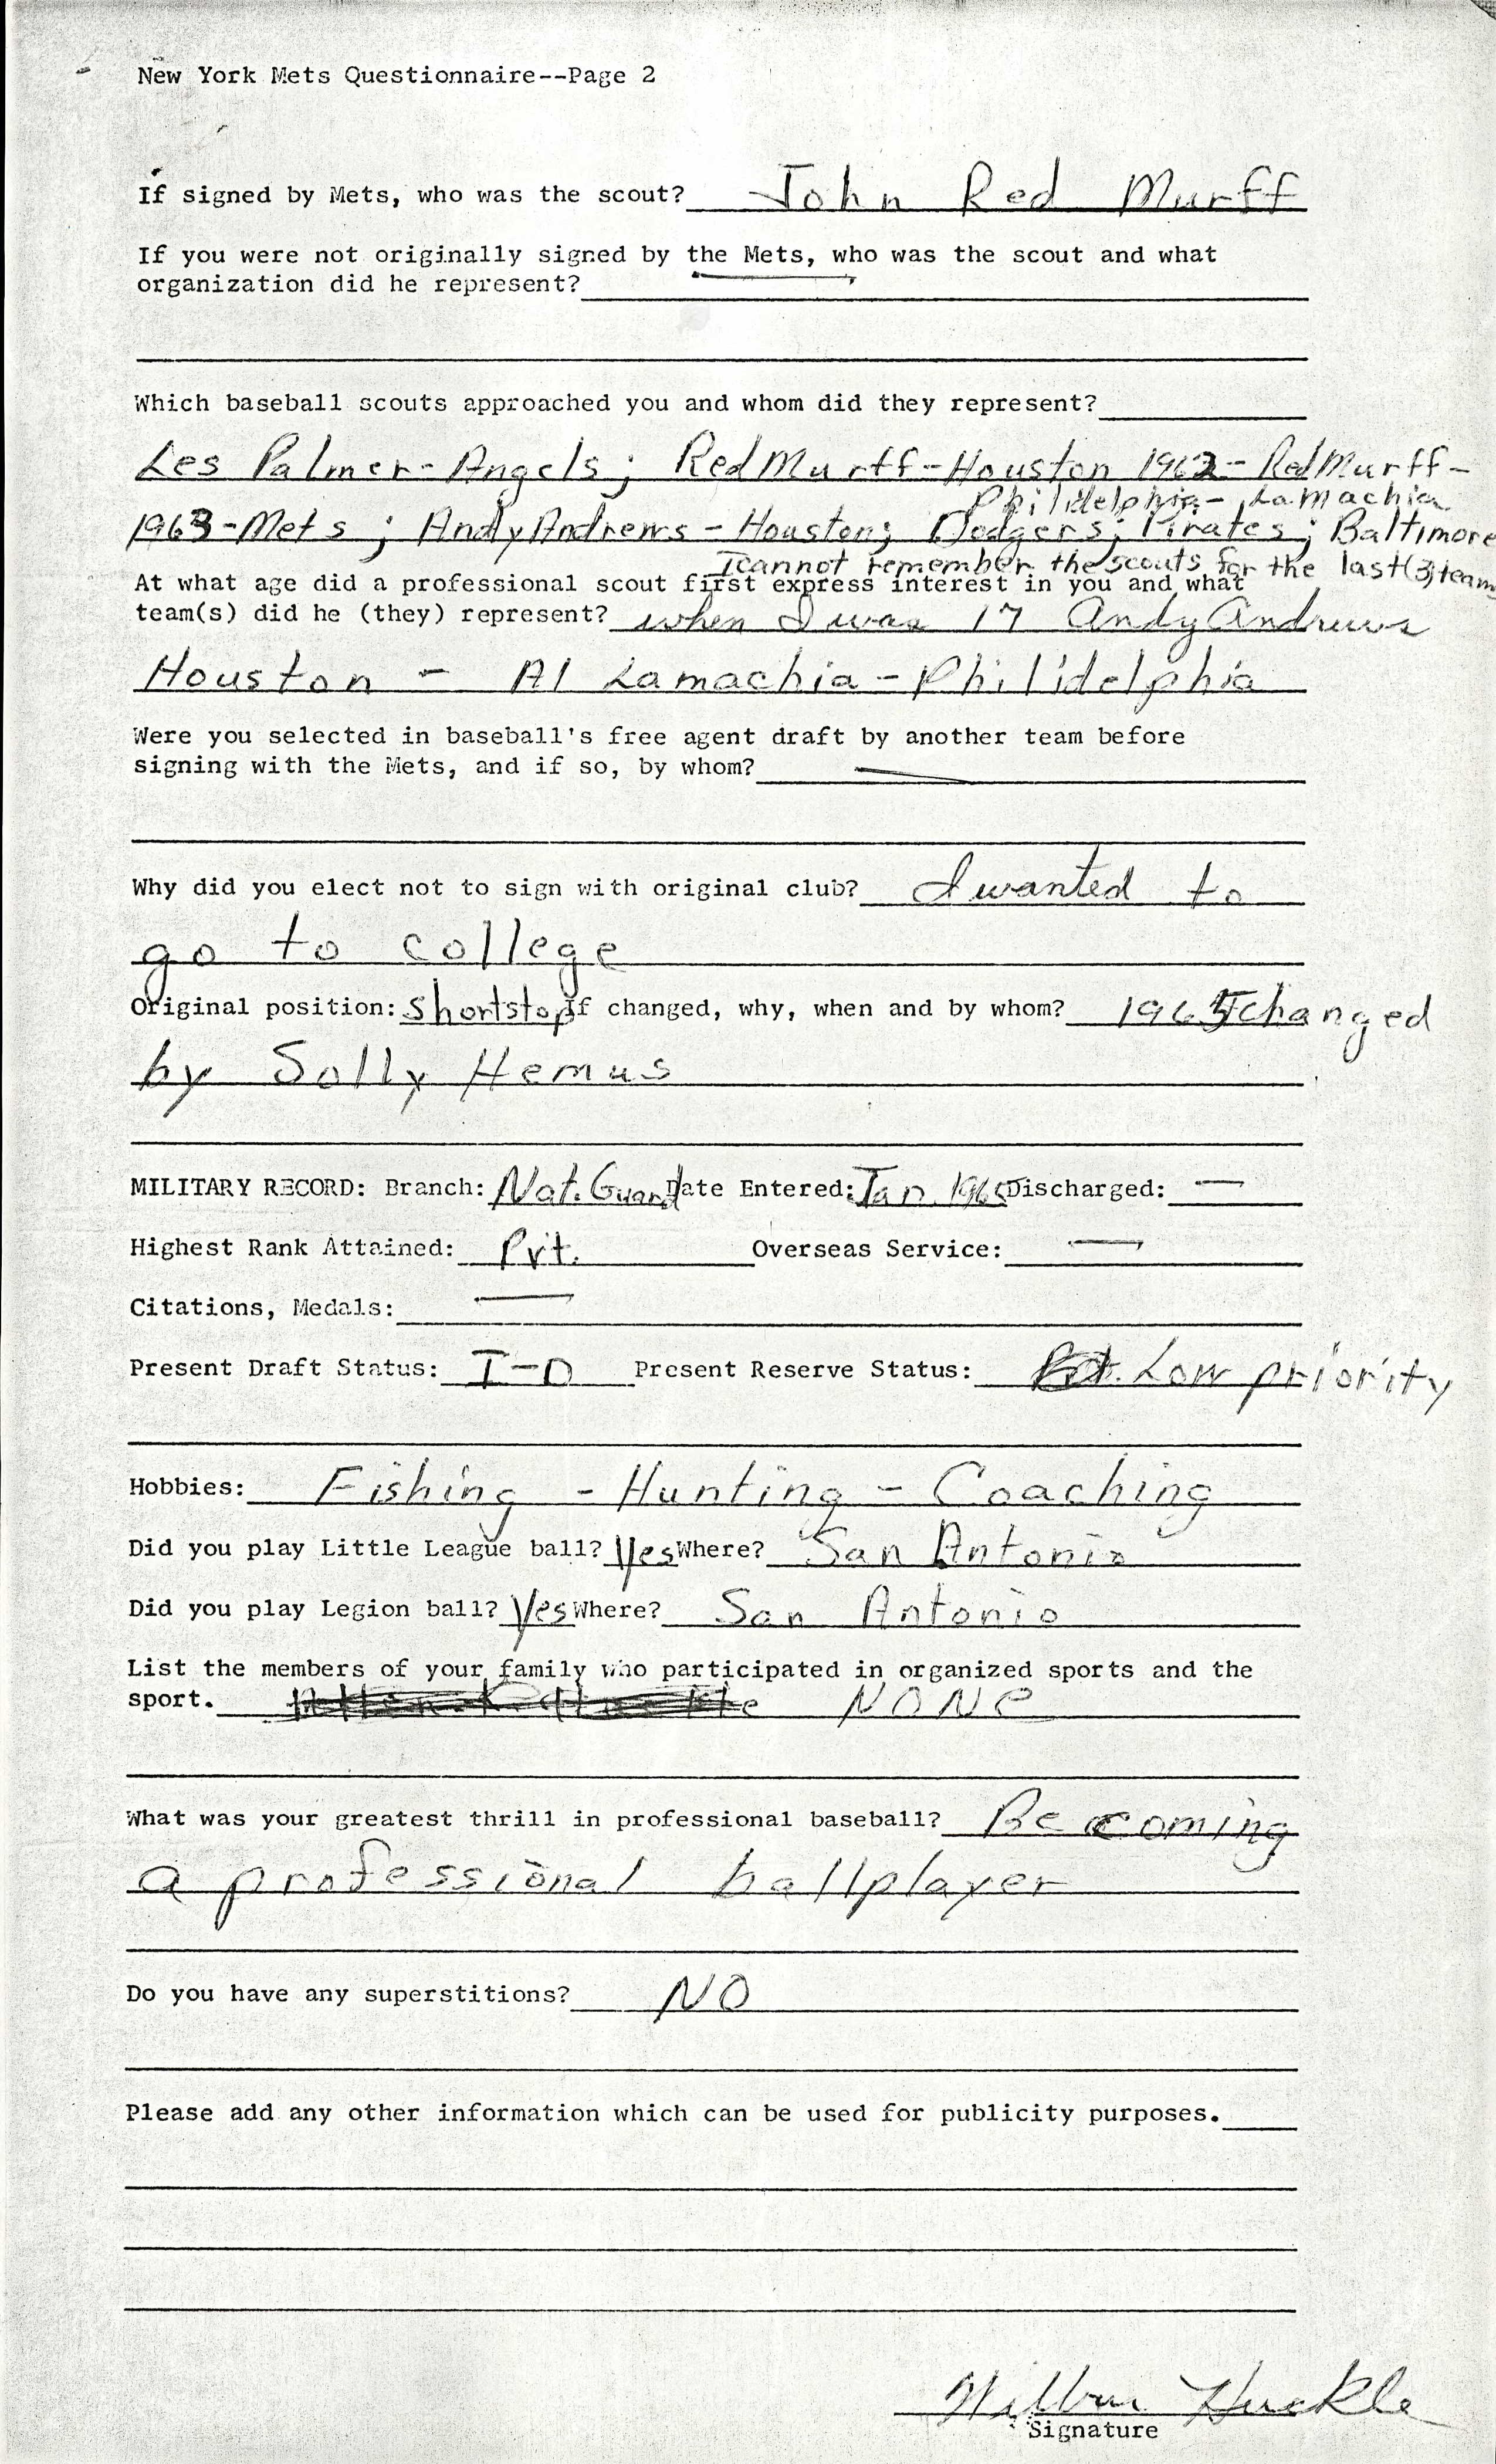 New York Mets Questionnaire--Page 2
If signed by Mets, who was the scout? John Red Murff
If you were not originally signed by the Mets, who was the scout and what
organization did he represent?
Which baseball scouts approached you and whom did they represent?
Les Palmer - Angels; Red Murff - Houston 1962 - Red Murff -
Philidelphia - Lamachia
1963 - Mets; Andy Andrews - Houston; Dodgers; Pirates; Baltimore
I cannot remember the scouts for the last (3) teams
At what age did a professional scout first express interest in you and what
team(s) did he (they) represent? when I was 17 Andy Andrews
Houston - Al Lamachia - Philidelphia
Were you selected in baseball's free agent draft by another team before
signing with the Mets, and if so, by whom? —
Why did you elect not to sign with original club? I wanted to
go to college
Original position: Shortstop If changed, why, when and by whom? 1965 changed
by Solly Hemus
MILITARY RECORD: Branch: Nat. Guard Date Entered: Jan. Discharged: —
Highest Rank Attained: Pvt. Overseas Service: —
Citations, Medals: —
Present Draft Status: I-D Present Reserve Status: Low priority
Hobbies: Fishing - Hunting - Coaching
Did you play Little League ball? Yes Where? San Antonio
Did you play Legion ball? Yes Where? San Antonio
List the members of your family who participated in organized sports and the
sport. NONE
What was your greatest thrill in professional baseball? Becoming
a professional ballplayer
Do you have any superstitions? NO
Please add any other information which can be used for publicity purposes.
Wilbur Huckle
Signature